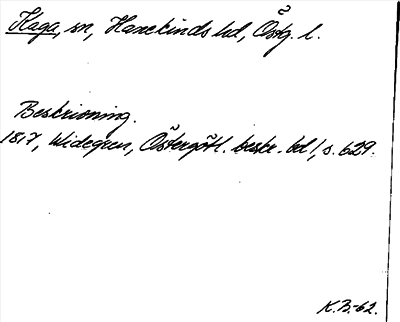 Haga, sn, Hanekinds hd, Östg. l.
Beskrivning.
1817, Widegren, Östergötl. beskr. bd 1, s. 629.
K.B.-62.